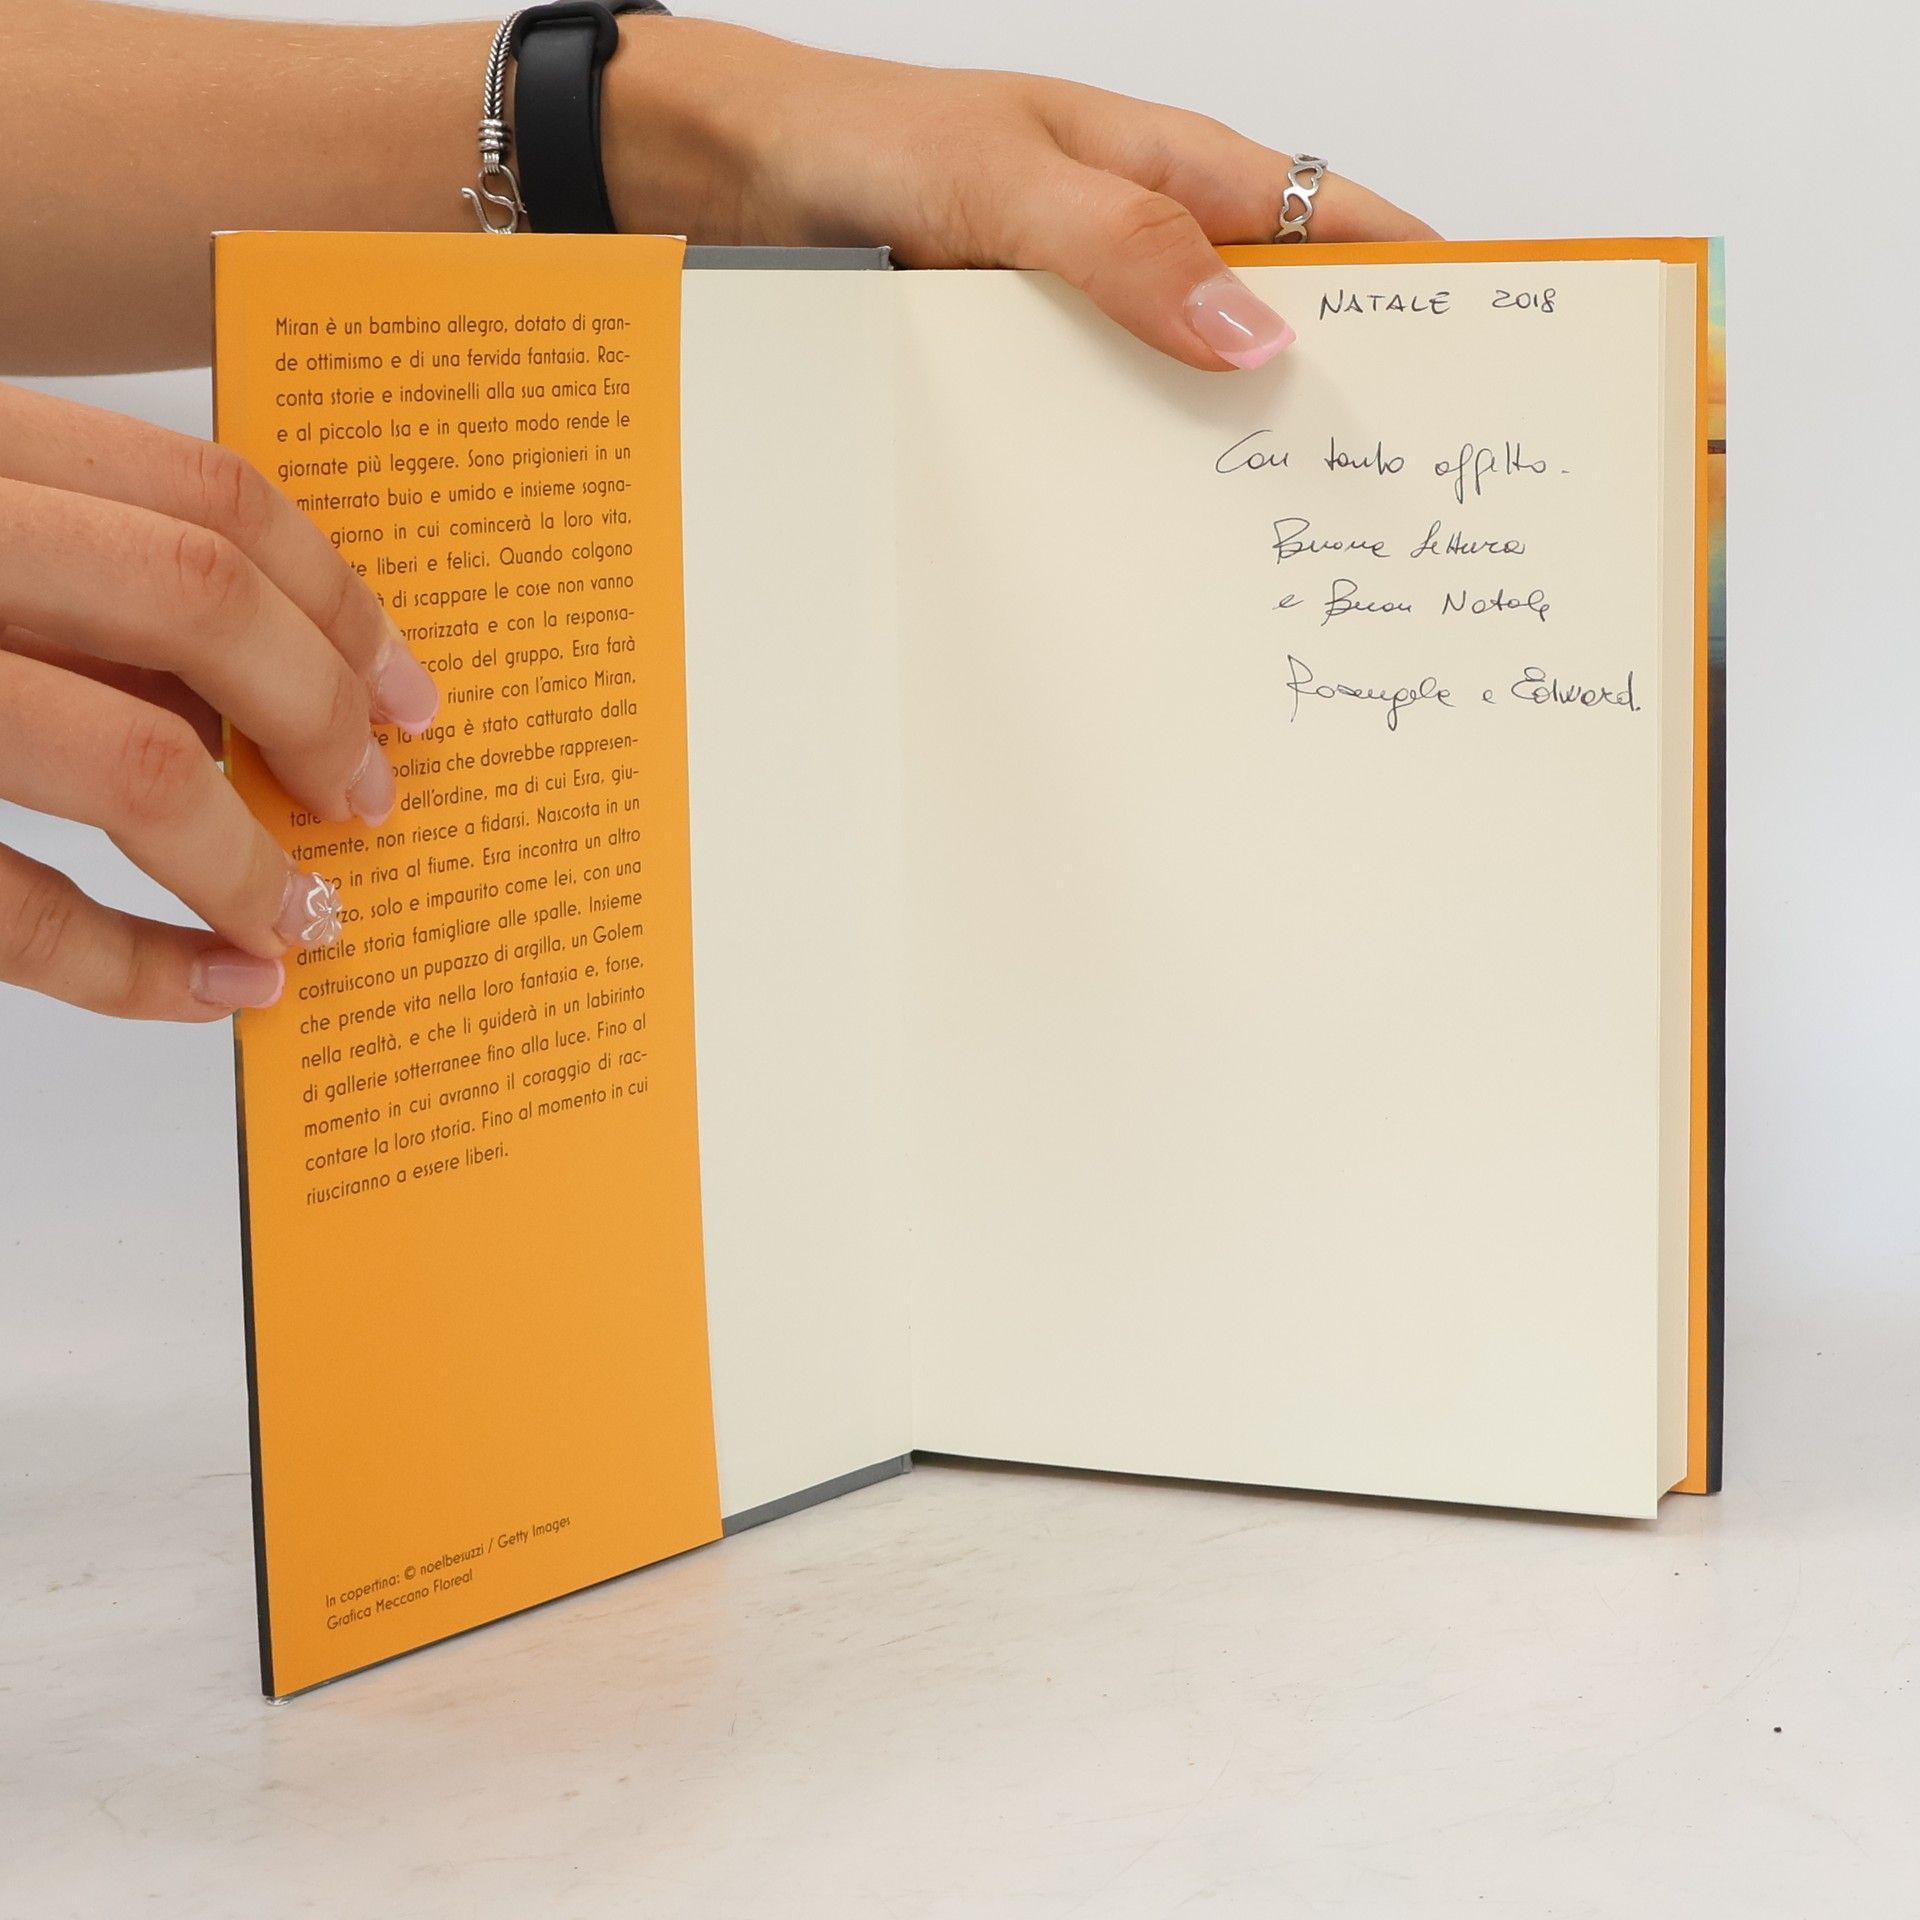 Miran è un bambino allegro, dotato di gran-
de ottimismo e di una fervida fantasia. Rac-
conta storie e indovinelli alla sua amica Esra
e al piccolo Isa e in questo modo rende le
giornate più leggere. Sono prigionieri in un
minterrato buio e umido e insieme sogna-
giorno in cui comincerà la loro vita,
te liberi e felici. Quando colgono
di scappare le cose non vanno
errorizzata e con la responsa-
ccolo del gruppo, Esra farà
riunire con l'amico Miran,
te la fuga è stato catturato dalla
polizia che dovrebbe rappresen-
tare dell'ordine, ma di cui Esra, giu-
stamente, non riesce a fidarsi. Nascosta in un
o in riva al fiume, Esra incontra un altro
zzo, solo e impaurito come lei, con una
difficile storia famigliare alle spalle. Insieme
costruiscono un pupazzo di argilla, un Golem
che prende vita nella loro fantasia e, forse,
nella realtà, e che li guiderà in un labirinto
di gallerie sotterranee fino alla luce. Fino al
momento in cui avranno il coraggio di rac-
contare la loro storia. Fino al momento in cui
riusciranno a essere liberi.
In copertina: © noelbesuzzi / Getty Images
Grafica Meccano Floreal
NATALE 2018
Con tanto affetto.
Buona lettura
e Buon Natale
Rosangela e Edward.